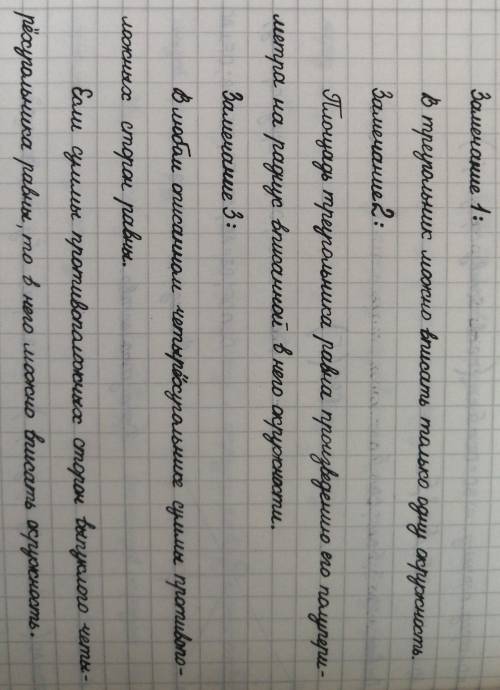 Замечание 1:
В треугольник можно вписать только одну окружность.
Замечание 2:
Площадь треугольника равна произведению его полупери-
метра на радиус вписанной в него окружности.
Замечание 3:
В любом описанном четырёхугольнике суммы противопо-
ложных сторон равны.
Если суммы противоположных сторон выпуклого четы-
рёхугольника равны, то в него можно вписать окружность.